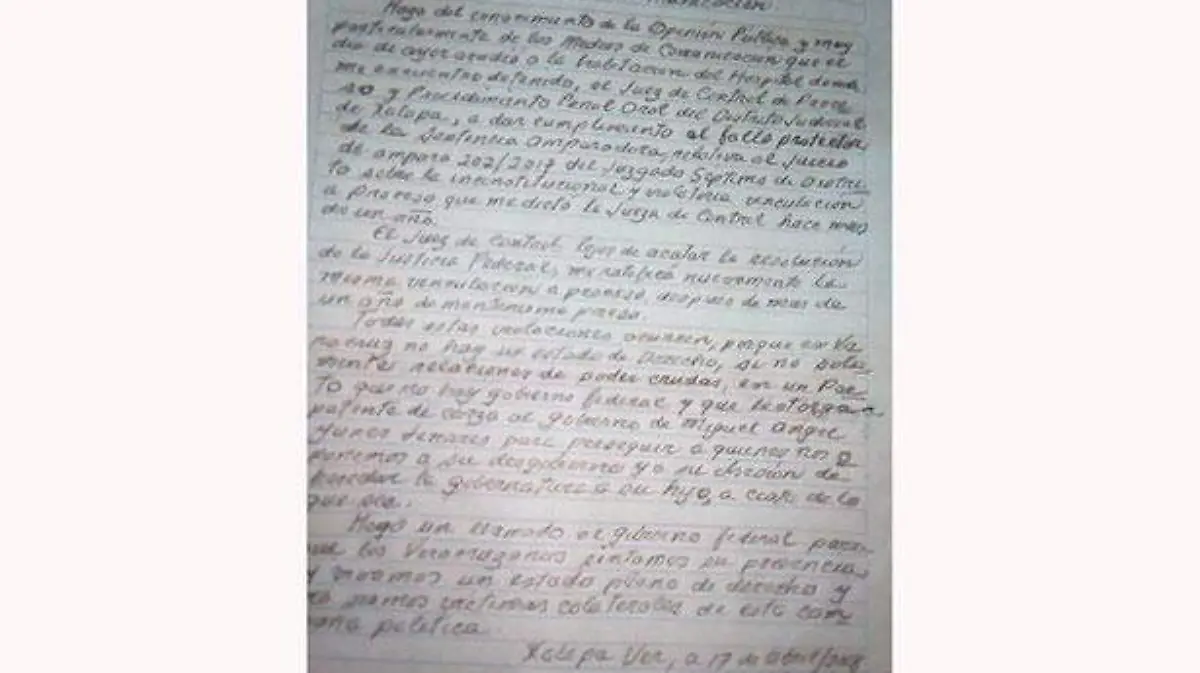 Hago del conocimiento de la Opinión Pública y muy
particularmente de los Medios de Comunicación que el
día de ayer acudió a la habitación del Hospital donde
me encuentro detenido, el Juez de Control de Proce
so y Procedimiento Penal Oral del Distrito Judicial
de Xalapa, a dar cumplimiento al fallo protector
de la Sentencia amparadora, relativa al Juicio
de amparo 202/2017 del Juzgado Septimo de Distri
to sobre la inconstitucional y violatoria vinculación
a proceso que me dictó la Jueza de Control hace mas
de un año.
El Juez de Control, lejos de acatar la resolución
de la Justicia Federal, me ratificó nuevamente la
misma vinculación a proceso, después de mas de
un año de mantenerme preso.
Todas estas violaciones ocurren, porque en Ve
racruz no hay un estado de Derecho, si no sola
mente relaciones de poder crudas, en un
to que no hay gobierno federal y que le otorgan
patente de corzo al gobierno de Miguel Angel
Yunes Linares para perseguir a quienes nos o
ponemos a su desgobierno y a su obsesión de
heredar la gobernatura a su hijo, a costa de lo
que sea.
Hago un llamado al gobierno federal para
que los Veracruzanos sintamos su presencia
y vivamos un estado pleno de derecho y
no seamos victimas colaterales de esta cam
paña política.
Xalapa Ver, a 17 de abril/2018